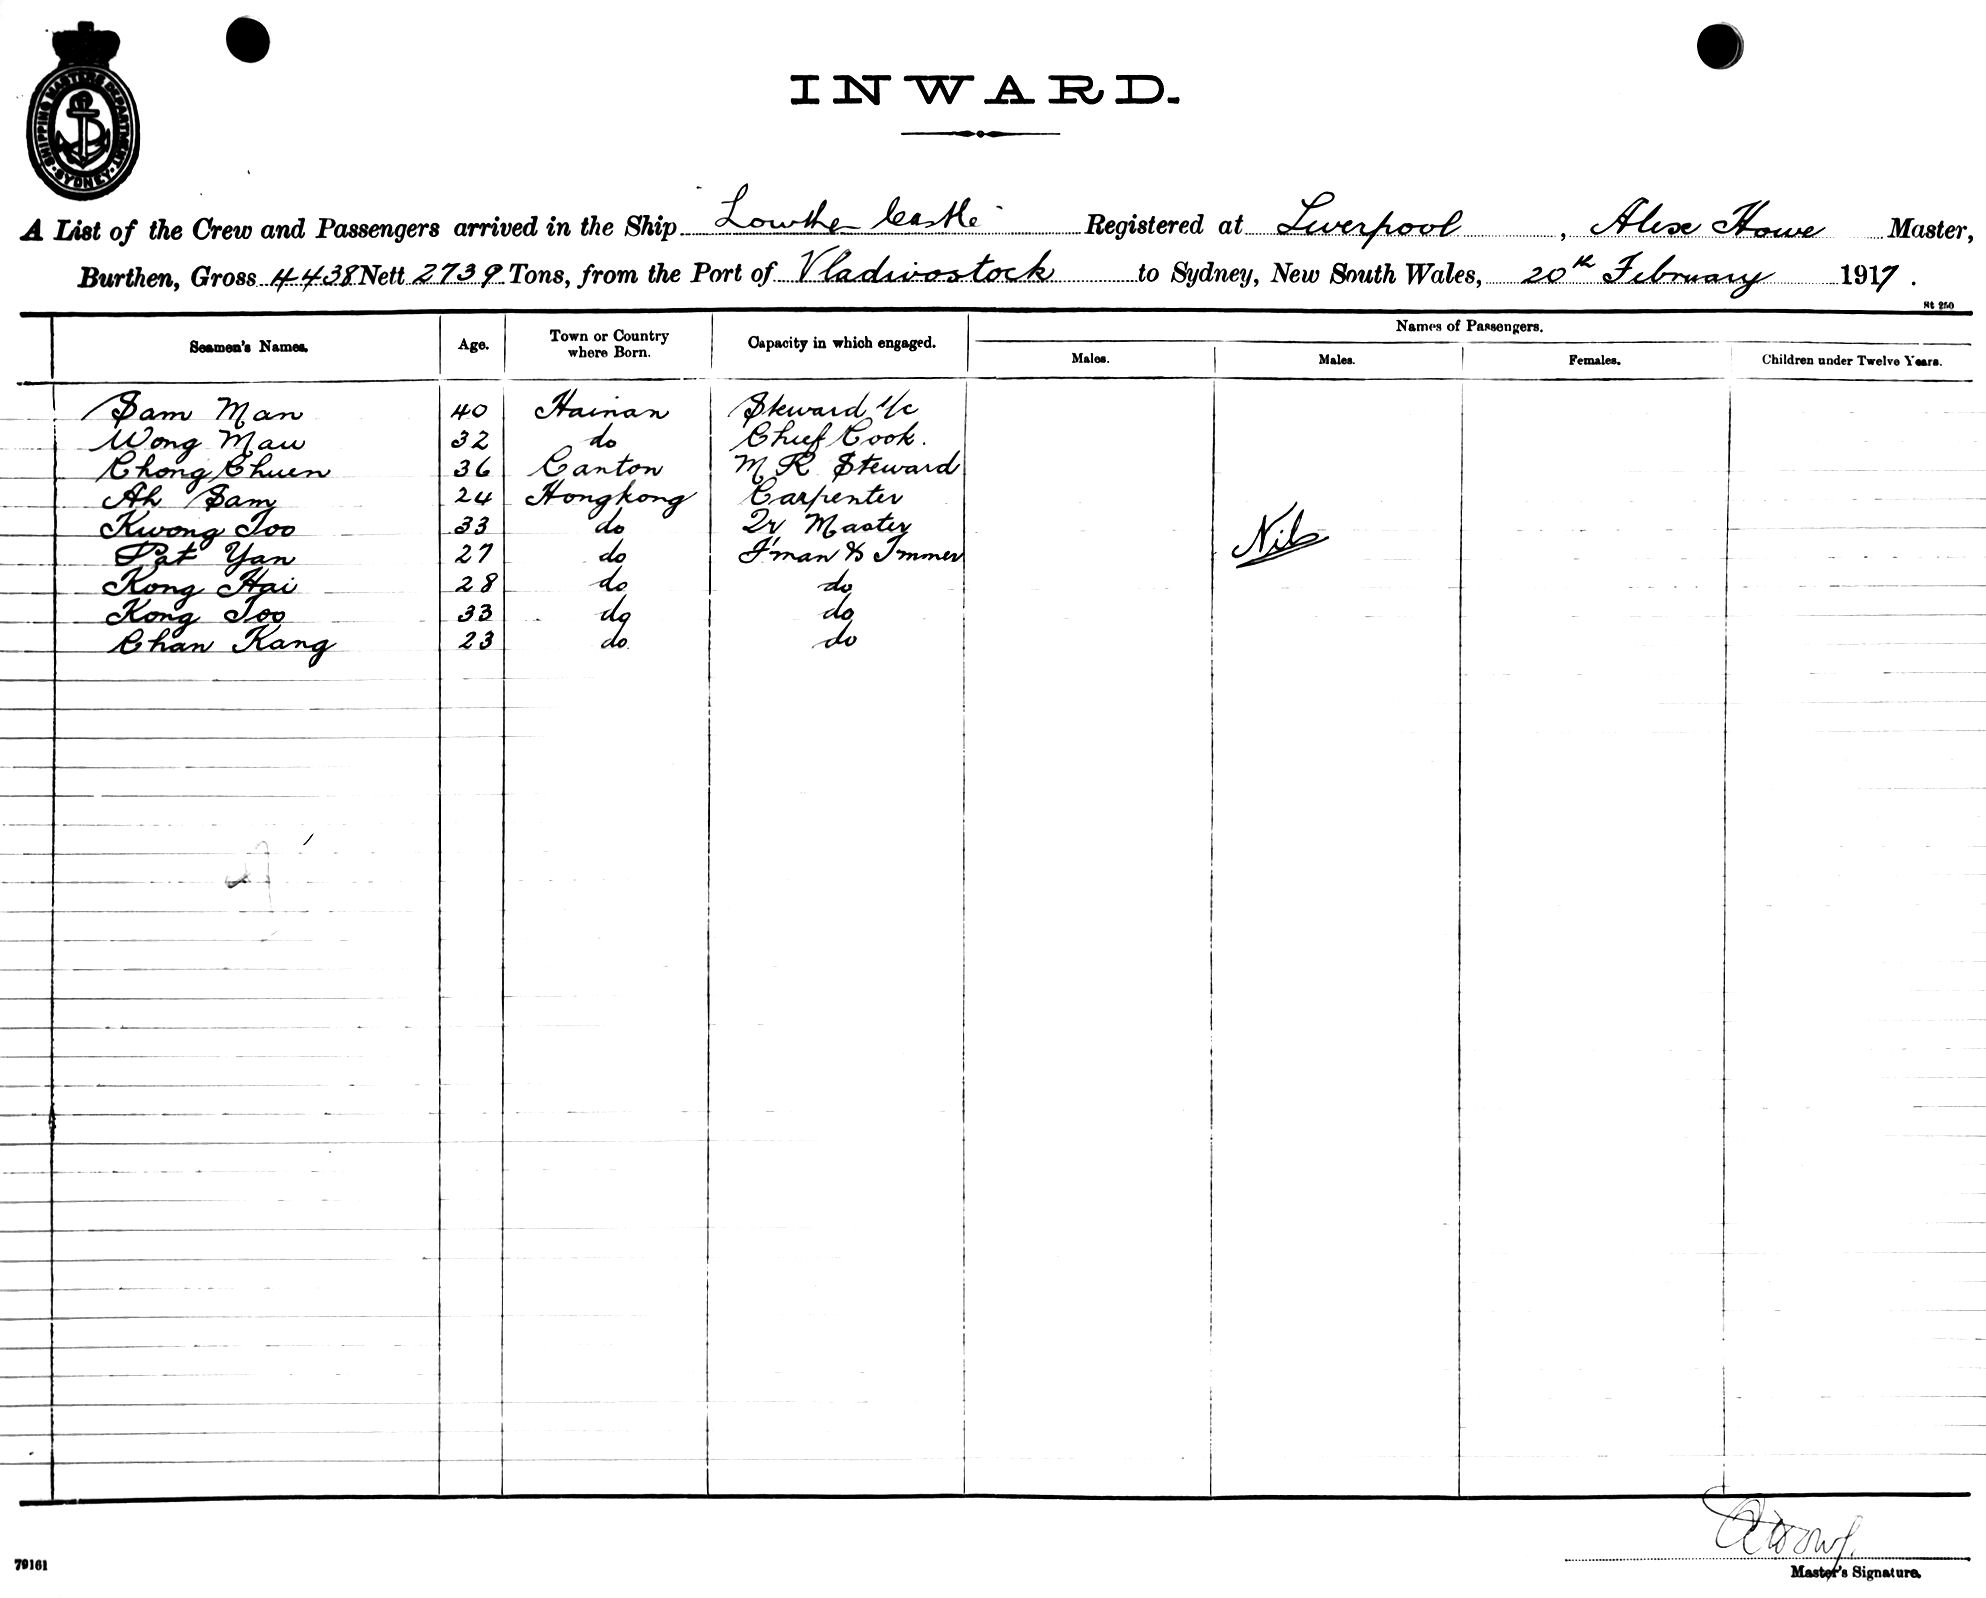 SHIPPING MASTERS DEPARTMENT
SYDNEY
INWARD.
A List of the Crew and Passengers arrived in the Ship Lowther Castle Registered at Liverpool, Alex Howe Master,
Burthen, Gross 4438 Nett 2739 Tons, from the Port of Vladivostock to Sydney, New South Wales, 20th February 1917.
St 250
Seamen's Names. Age. Town or Country where Born. Capacity in which engaged. Names of Passengers.
Males. Males. Females. Children under Twelve Years.
Sam Man 40 Hainan Steward 1/c
Wong Mau 32 do Chief Cook.
Chong Chuen 36 Canton M R Steward
Ah Sam 24 Hongkong Carpenter
Kwong Too 33 do Qr Master
Pat Yan 27 do F'man & Tmmer
Nil
Kong Hai 28 do do
Kong Too 33 do do
Chan Kang 23 do do
79161
Master's Signature.